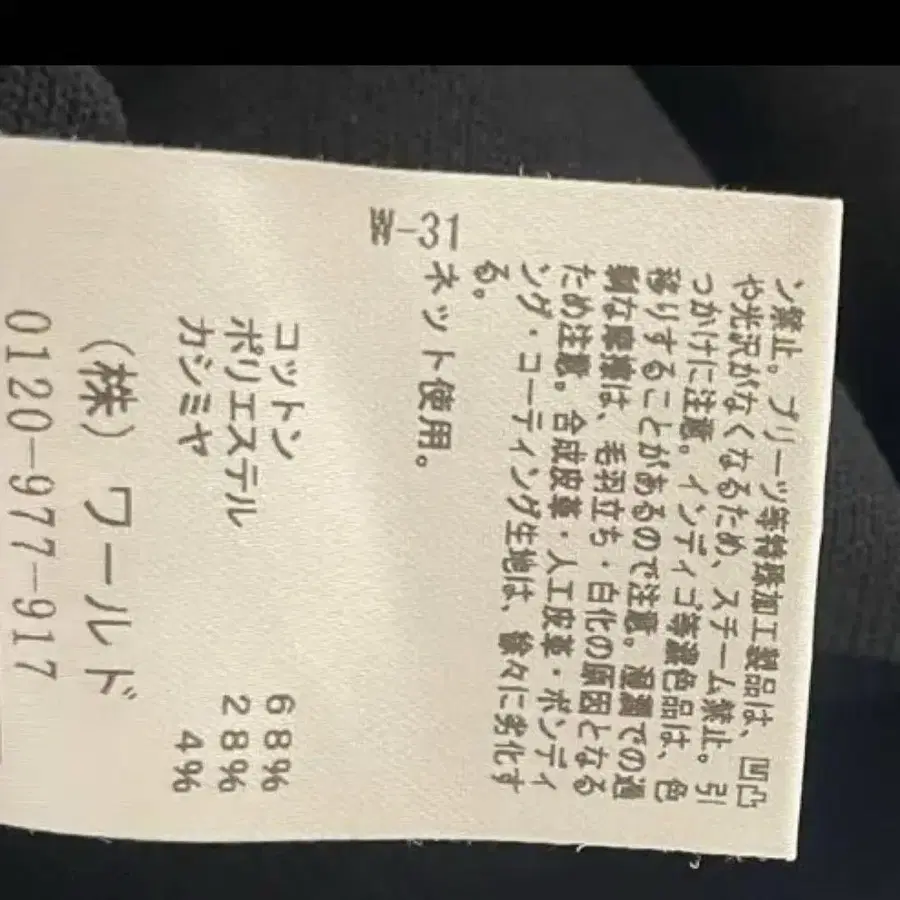 ン禁止。プリーツ等特殊加工製品は、凹凸
や光沢がなくなるため、スチーム禁止。引
っかけに注意。インディゴ等濃色品は、色
移りすることがあるので注意。過剰な摩擦は、毛羽立ち・白化の原因となる
ため注意。合成皮革・人工皮革・ボンディ
ング・コーティング生地は、徐々に劣化す
る。
ネット使用。
W-31
コットン 68%
ポリエステル 28%
カシミヤ 4%
(株) ワールド
0120-977-917